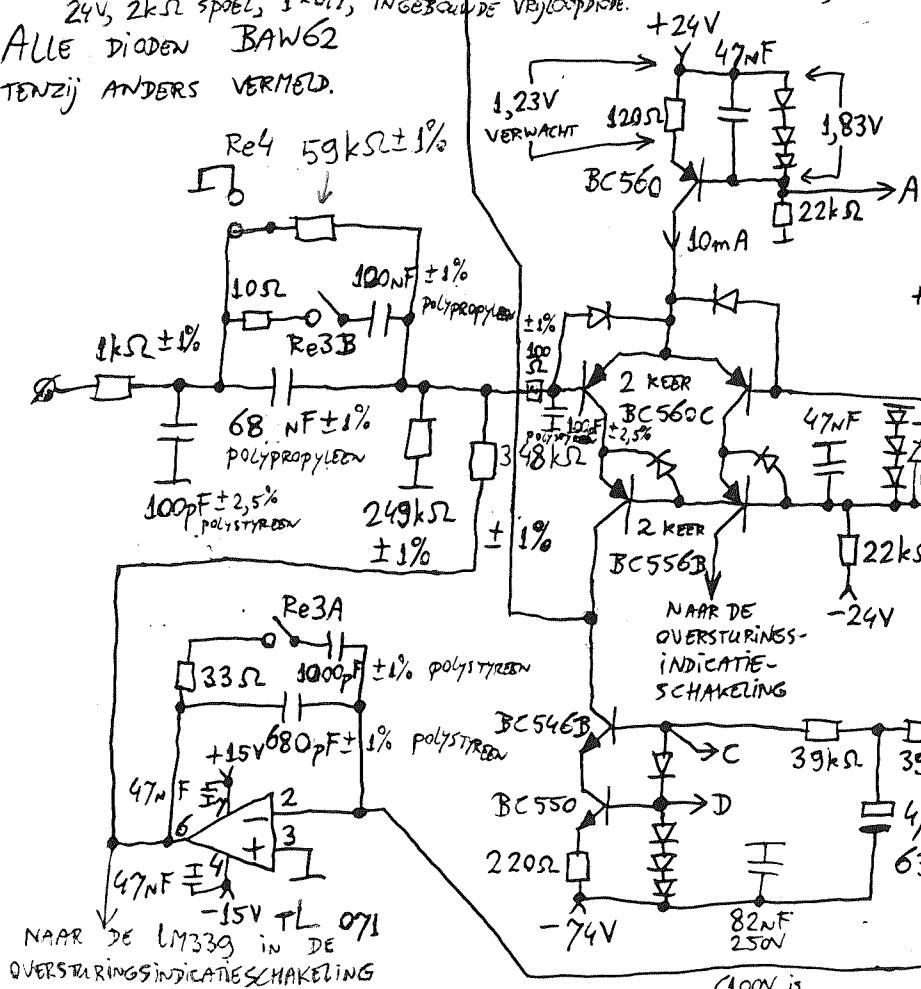 24V, 2kΩ SPOEL, INGEBOUWDE VRIJLOOPDIODE.
ALLE DIODEN BAW62
TENZIJ ANDERS VERMELD.
+24V
47nF
1,23V
VERWACHT
120Ω
1,83V
BC560
A
22kΩ
10mA
Re4
59kΩ±1%
10Ω
100nF ±1%
POLYPROPYLEEN
Re3B
1kΩ ±1%
68 nF ±1%
POLYPROPYLEEN
100pF ±2,5%
POLYSTYREEN
249kΩ
±1%
348kΩ
±1%
±1%
100
Ω
100pF ±2,5%
POLYSTYREEN
2 KEER
BC560C
47nF
2 KEER
BC556B
22k
-24V
NAAR DE
OVERSTURINGS-
INDICATIE-
SCHAKELING
Re3A
33Ω
1000pF ±1% POLYSTYREEN
680pF ±1% POLYSTYREEN
+15V
47nF
2
6
3
4
-
+
47nF
-15V
TL 071
NAAR DE LM339 IN DE
OVERSTURINGSINDICATIESCHAKELING
BC546B
C
39kΩ
39
BC550
D
220Ω
4,
63
-74V
82nF
250V
(100V is